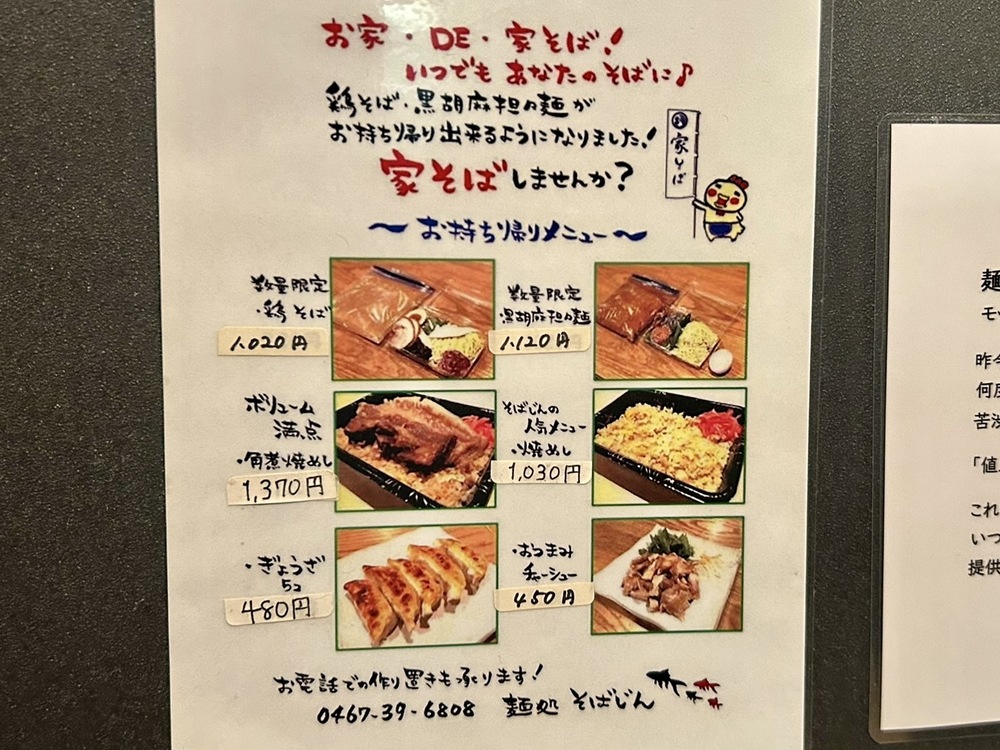 お家・DE・家そば!
いつでも あなたのそばに♪
鶏そば・黒胡麻担々麺が
お持ち帰り出来るようになりました!
家そばしませんか?
家そば
〜お持ち帰りメニュー〜
数量限定
・鶏そば
1.020円
数量限定
・黒胡麻担々麺
1.120円
ボリューム
満点
・角煮焼めし
1,370円
そばじんの
人気メニュー
・焼めし
1,030円
・ぎょうざ
5コ
480円
・おつまみ
チャーシュー
450円
お電話での作り置きも承ります!
0467-39-6808 麺処 そばじん
麺
昨今
何度
「値
これ
いつ
提供